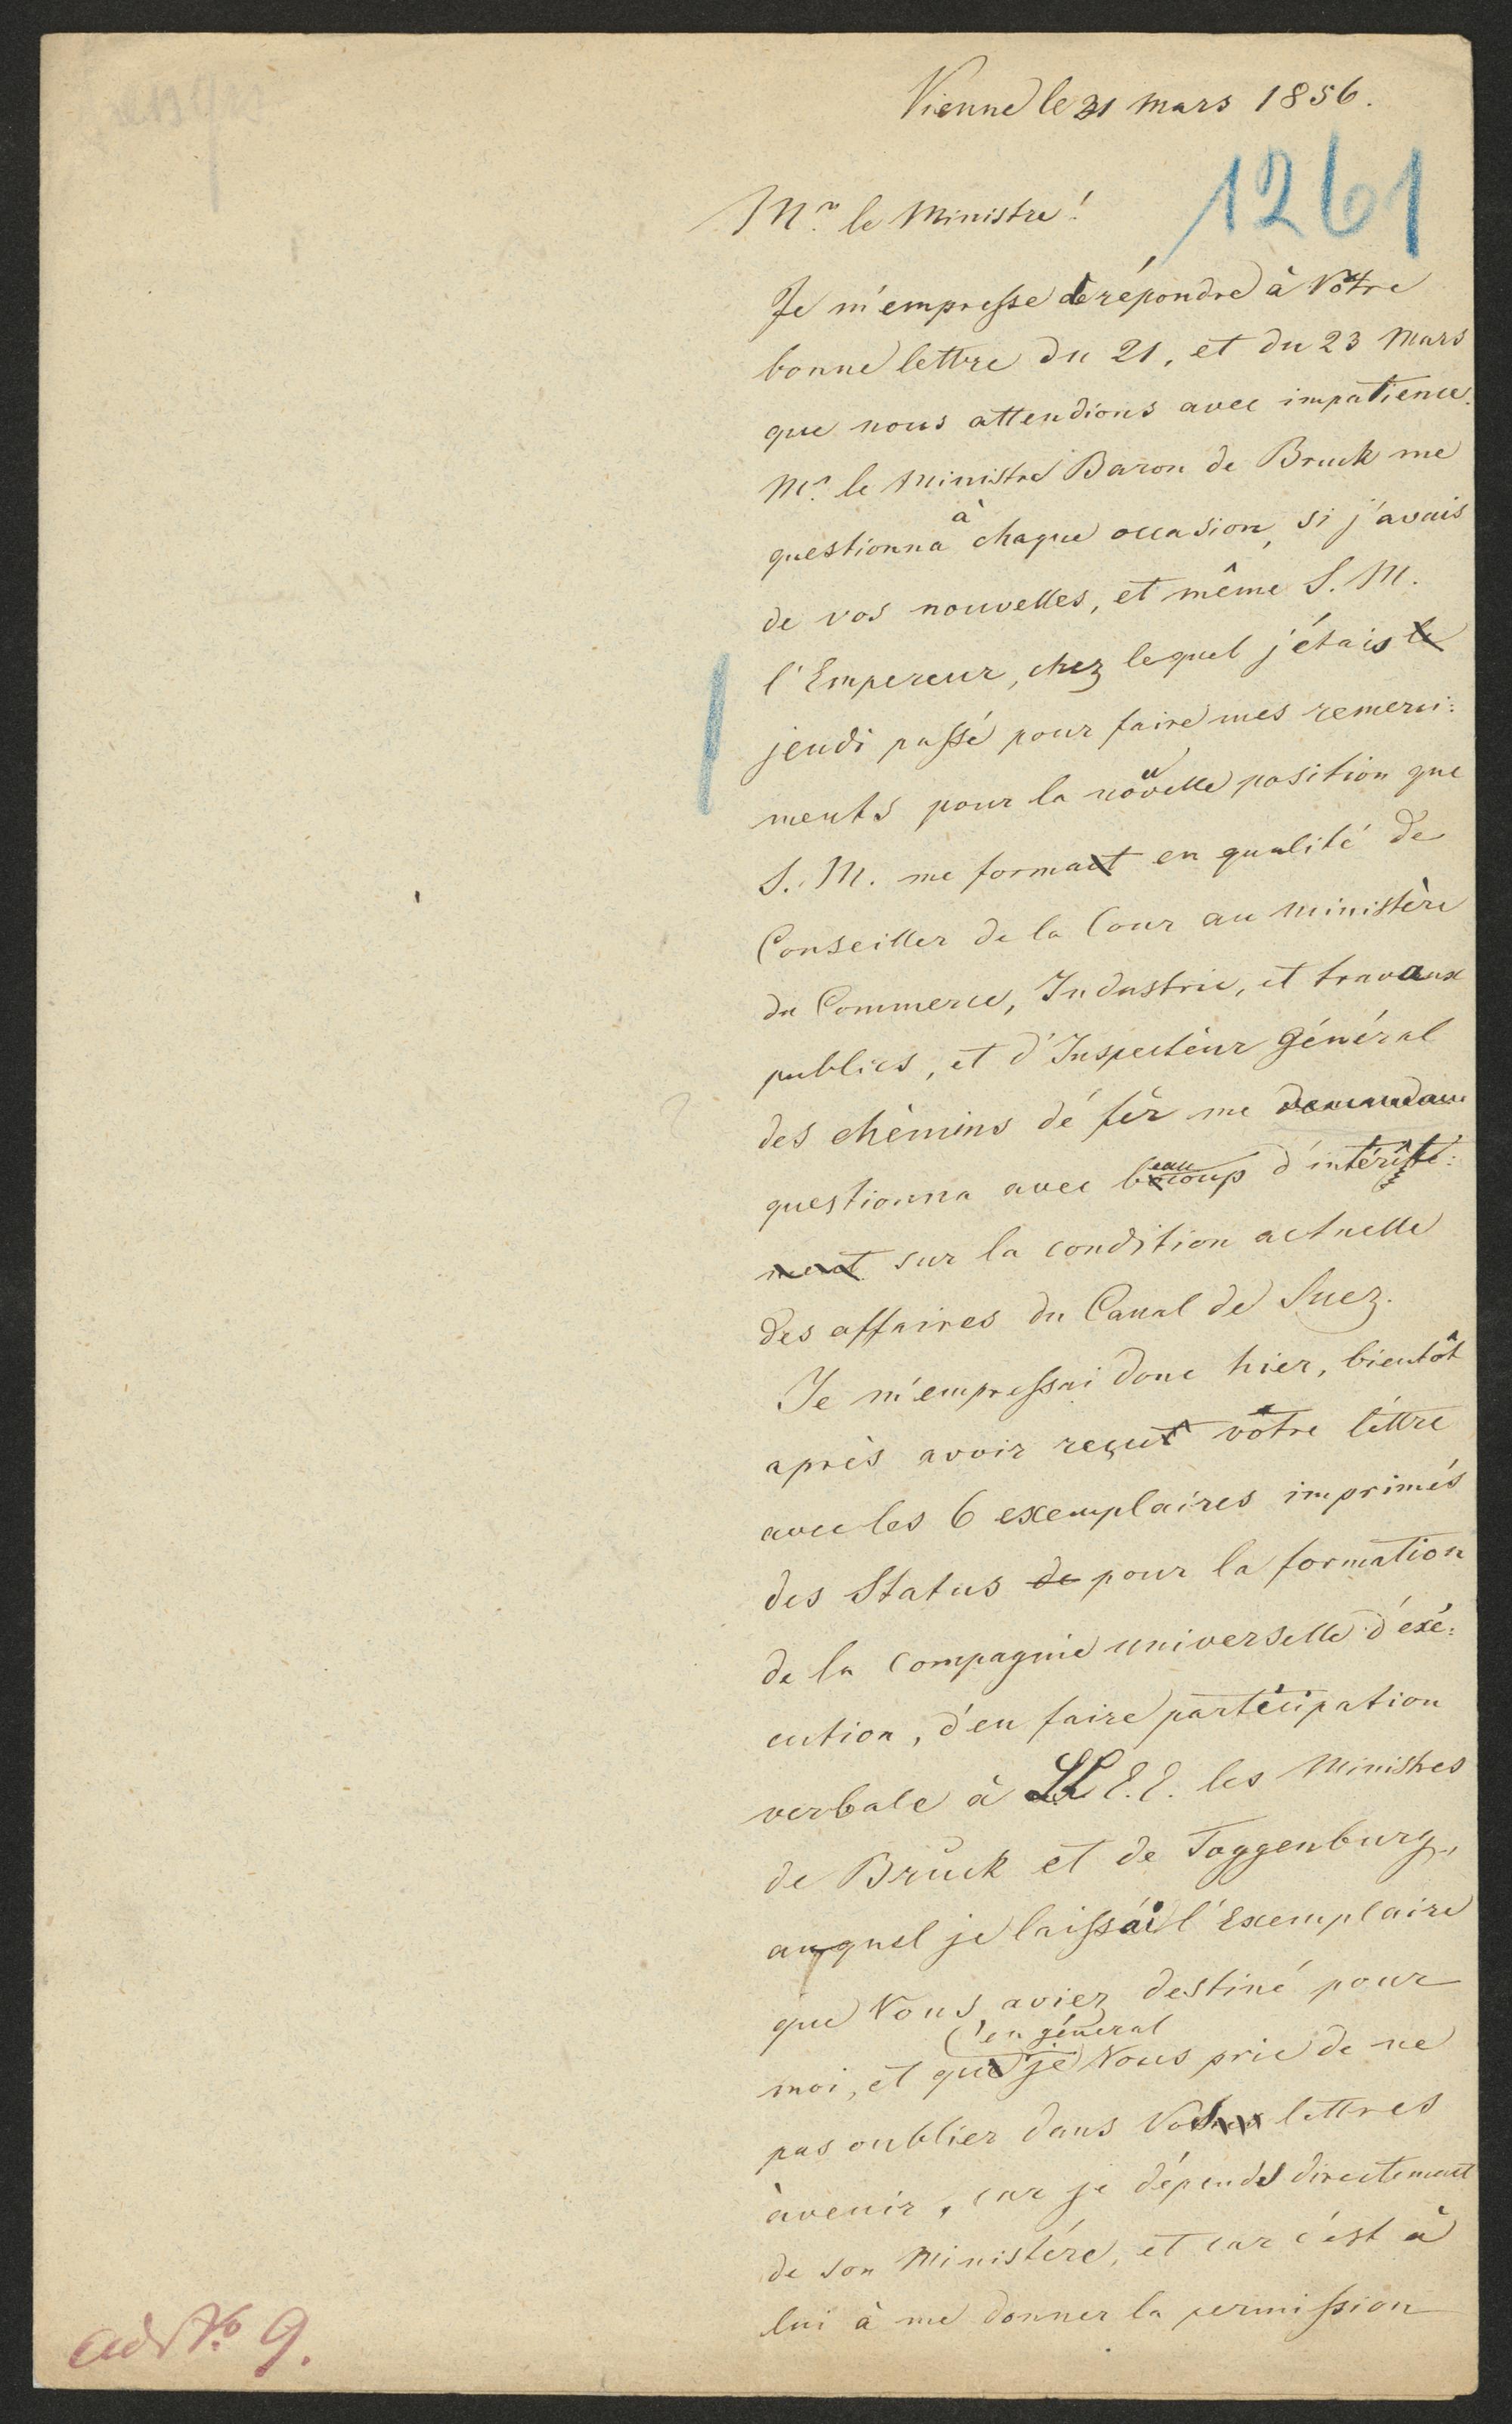 Vienne le 31 mars 1856.
1261
Mr. le Ministre!
Je m'empresse de répondre à Vôtre
bonne lettre du 21, et du 23 Mars
que nous attendions avec impatience.
Mr. le Ministre Baron de Bruck me
questionna à chaque occasion, si j'avais
de vos nouvelles, et même S. M.
l'Empereur, chez lequel j'étais le
jeudi passé pour faire mes remerci:
ments pour la nouvelle position que
S. M. me format en qualité de
Conseiller de la Cour au ministère
du Commerce, Industrie, et travaux
publics, et d'Inspecteur Général
des chémins dé fèr me demandam
questionna avec beaucoup d'intérêt
ment sur la condition actuelle
des affaires du Canal de Suez.
Je m'empressai donc hier, bientôt
après avoir reçut vôtre lettre
avec les 6 exemplaires imprimés
des Status de pour la formation
de la Compagnie universelle d'éxé:
cution, d'en faire partécipation
verbale à LL. E.E. les Ministres
de Bruck et de Toggenburg,
auquel je laissai l'Exemplaire
que Vous aviez destiné pour
moi, et qu'en général je Vous prie de ne
pas oublier dans Vos lettres
àvenir, car je dépends directement
de son Ministére, et car c'est à
lui à me donner la permission
ad No. 9.